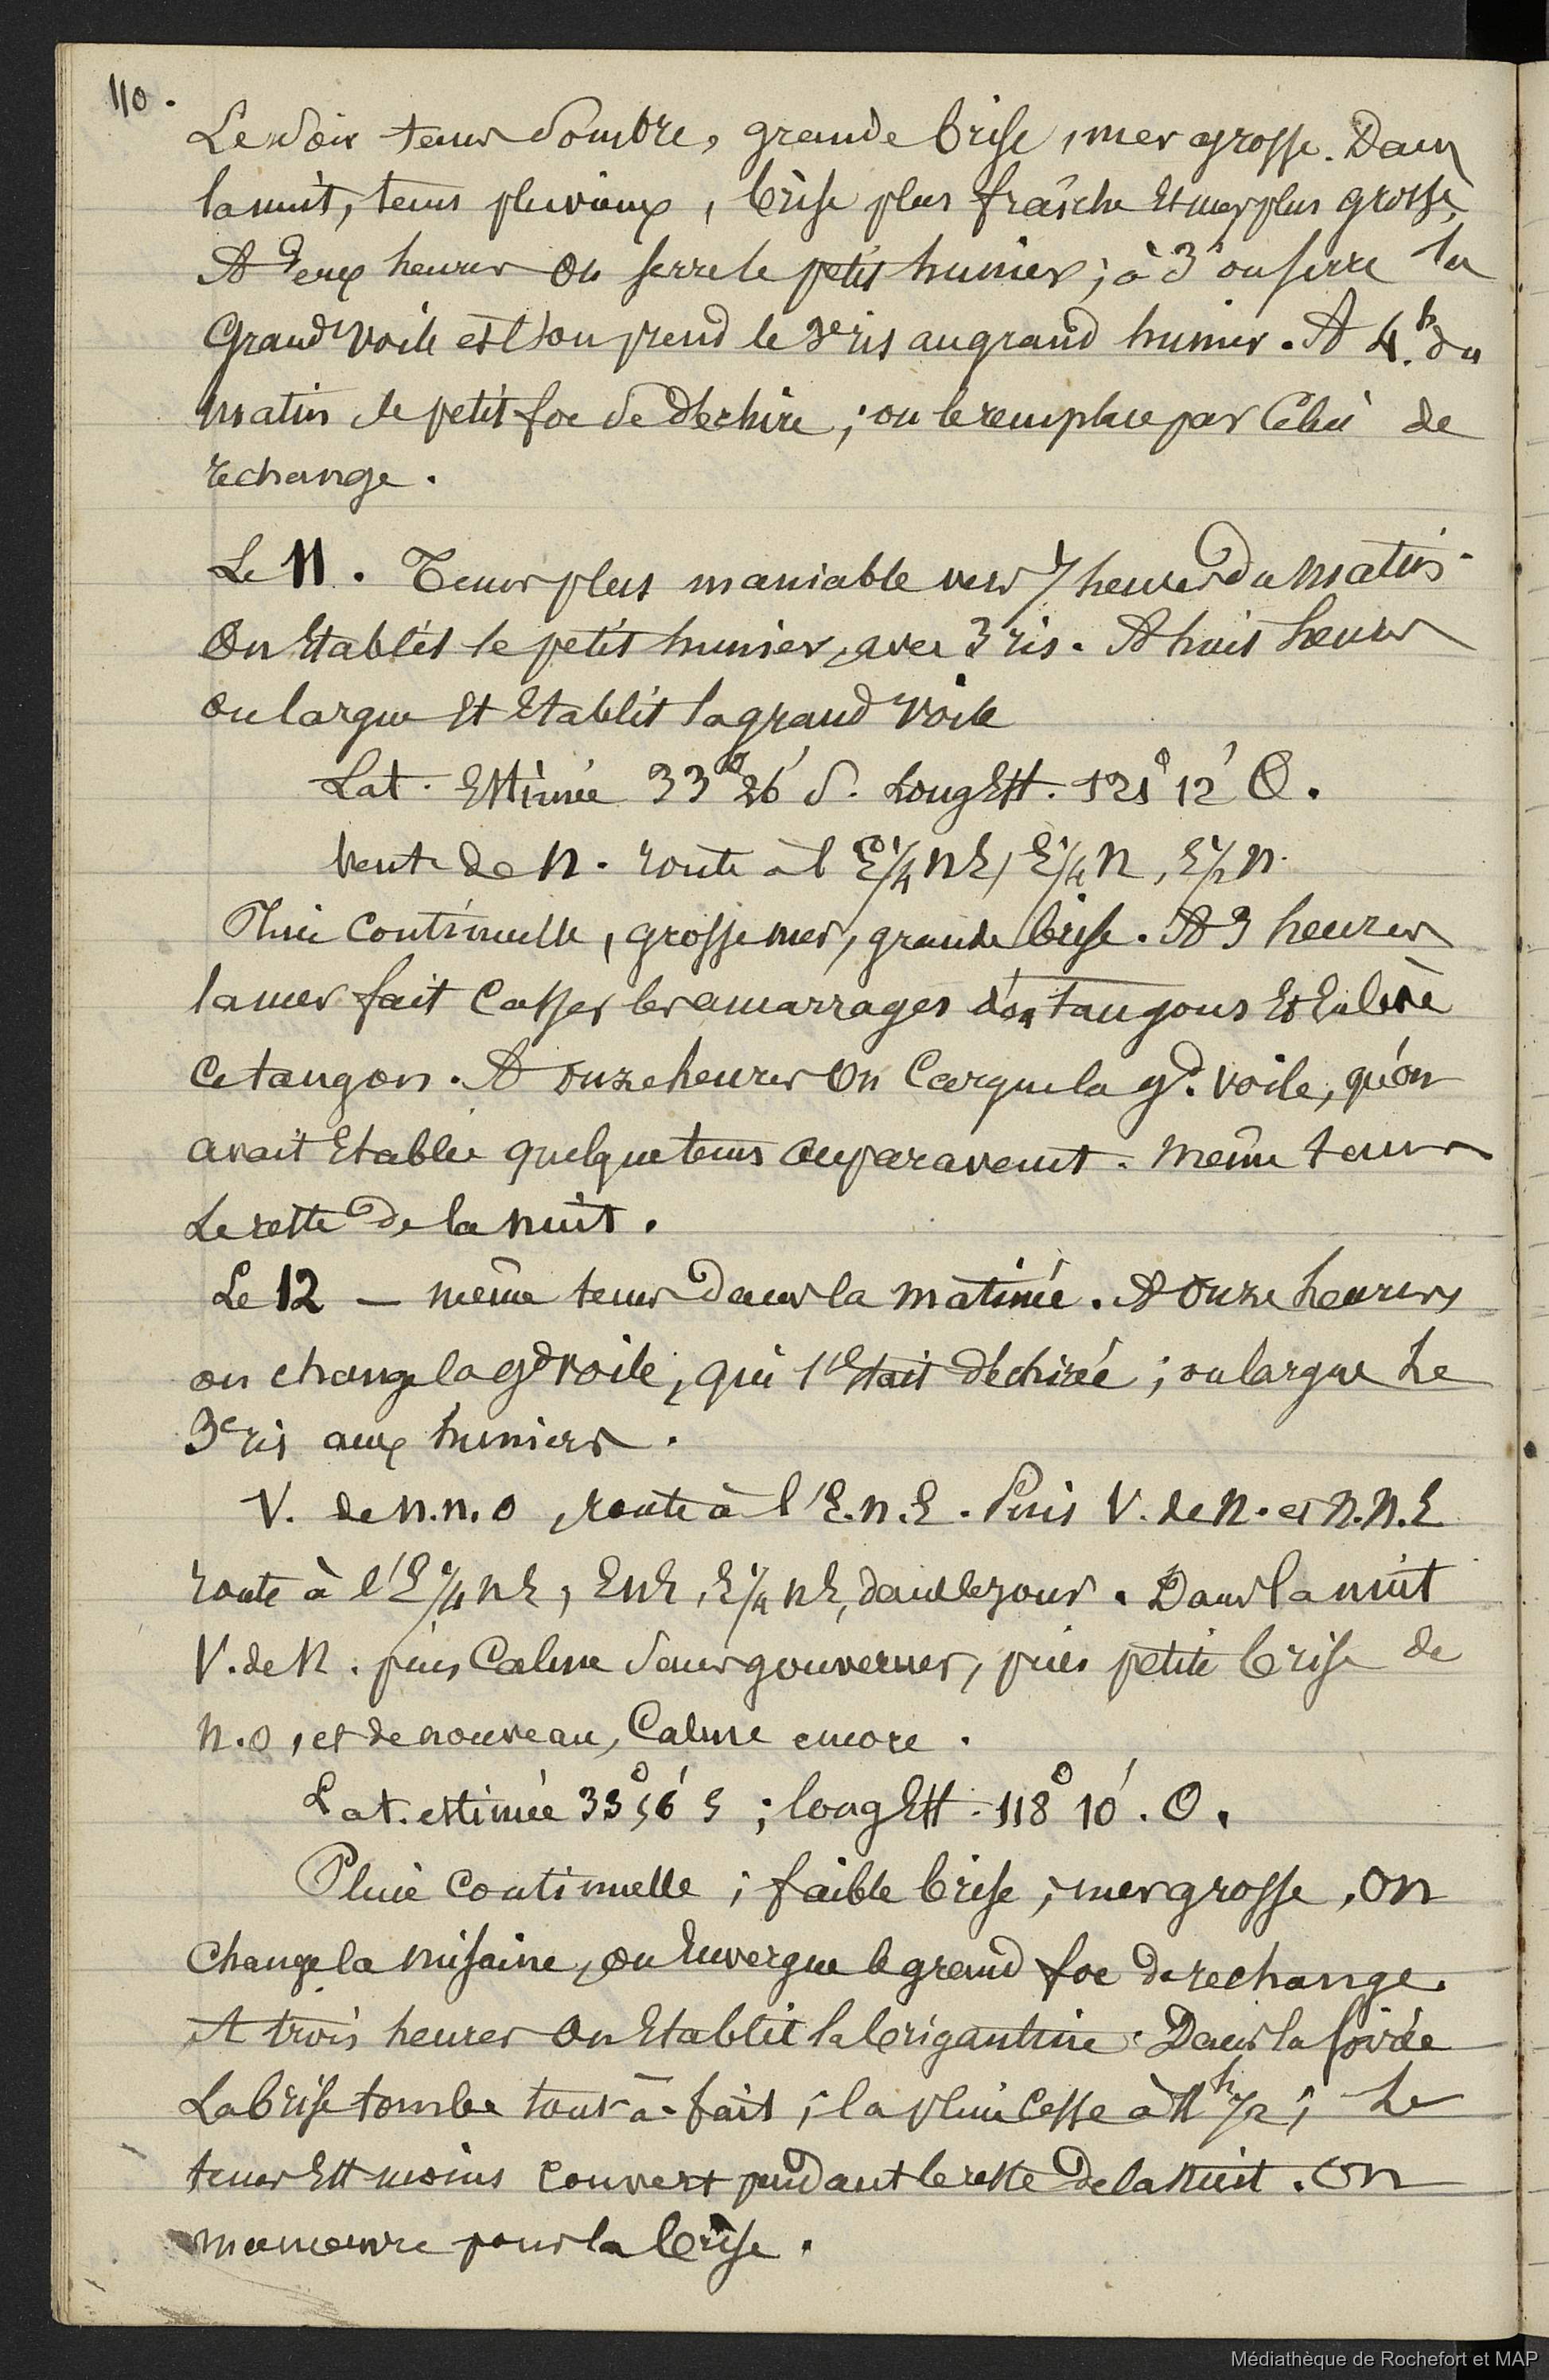 110.
Le soir tems sombre, grande brise, mer grosse. Dans
la nuit, tems pluvieux, brise plus fraîche et mer plus grosse,
A deux heures on serre le petit hunier; à 3h on serre la
Grand voile et l'on prend le 3e ris au grand hunier. A 4h. du
matin le petit foc se déchire; on le remplace par celui de
rechange.
Le 11. Tems plus maniable vers 7 heures du matin.
On Etablit le petit hunier, avec 3 ris. A huit heures
on largue et Etablit la grand voile
Lat. Estimée 33° 26' S. Long Est. 121° 12' O.
Vent de N. route à l'E 1/4 NE, E 1/4 N, E 1/2 N.
Pluie continuelle, grosse mer, grande brise. A 3 heures
la mer fait casser les amarrages d'un tangons et Enlève
ce tangon. A onze heures on cargue la gd. voile, qu'on
avait Etablie quelque tems auparavant. même tems
Le reste de la nuit.
Le 12 — même tems dans la matinée. A onze heures
on change la gd voile, qui s'était déchirée; on largue le
3e ris aux huniers.
V. de N.N.O, route à l'E.N.E. Puis V. de N. et N.N.E
route à l'E 1/4 NE, ENE, E 1/4 NE, dans le jour. Dans la nuit
V. de N. puis Calme sans gouverner, puis petite brise de
N.O, et de nouveau, Calme encore.
Lat. estimée 33° 56' S; long Est. 118° 10'. O.
Pluie continuelle; faible brise; mer grosse, on
Change la misaine, on Envergue le grand foc de rechange.
A trois heures on Etablit la brigantine. Dans la soirée
La brise tombe tout-à-fait; la pluie cesse à 11h 1/2; Le
tems Est moins couvert pendant le reste de la nuit. On
manœuvre pour la brise.
Médiathèque de Rochefort et MAP